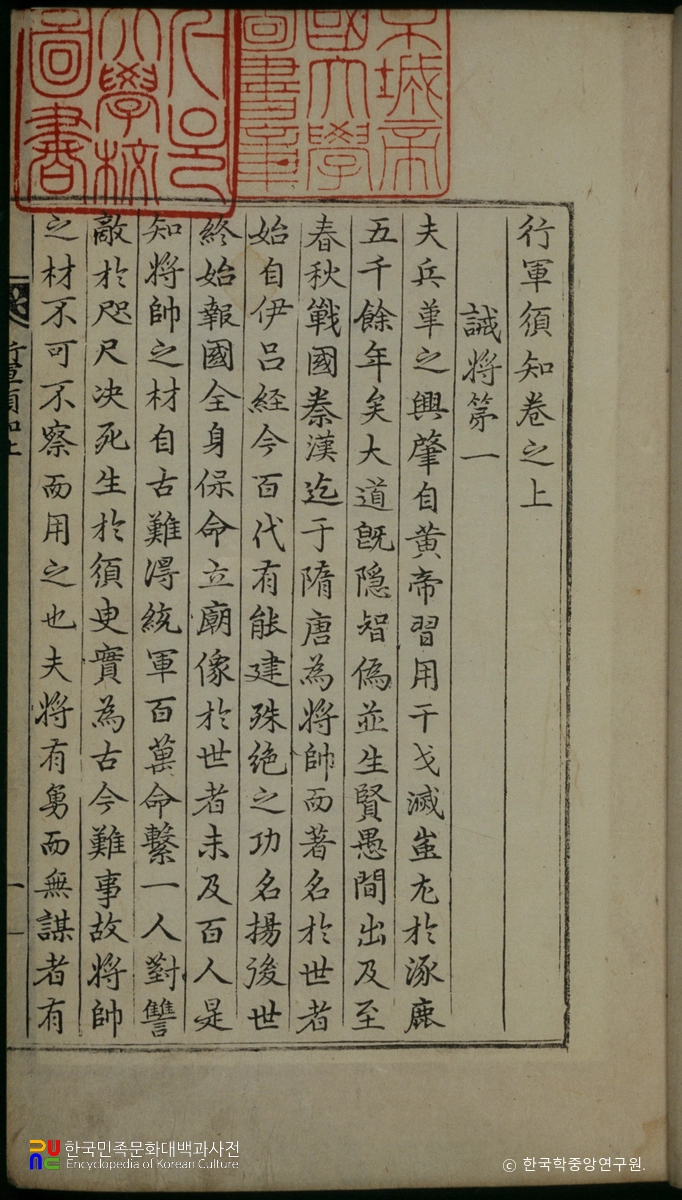 行軍須知卷之上
誡將第一
夫兵革之興肇自黃帝習用干戈滅蚩尤於涿鹿
五千餘年矣大道旣隐智偽並生賢愚間出及至
春秋戰國秦漢迄于隋唐為將帥而著名於世者
始自伊呂経今百代有能建殊绝之功名揚後世
終始報國全身保命立廟像於世者未及百人是
知將帥之材自古難淂統軍百萬命繫一人對讐
敵於咫尺决死生於須臾實為古今難事故將帥
之材不可不察而用之也夫將有勇而無謀者有
行軍須知上
一
圖書
京城帝國大學圖書章
한국민족문화대백과사전
Encyclopedia of Korean Culture
© 한국학중앙연구원.